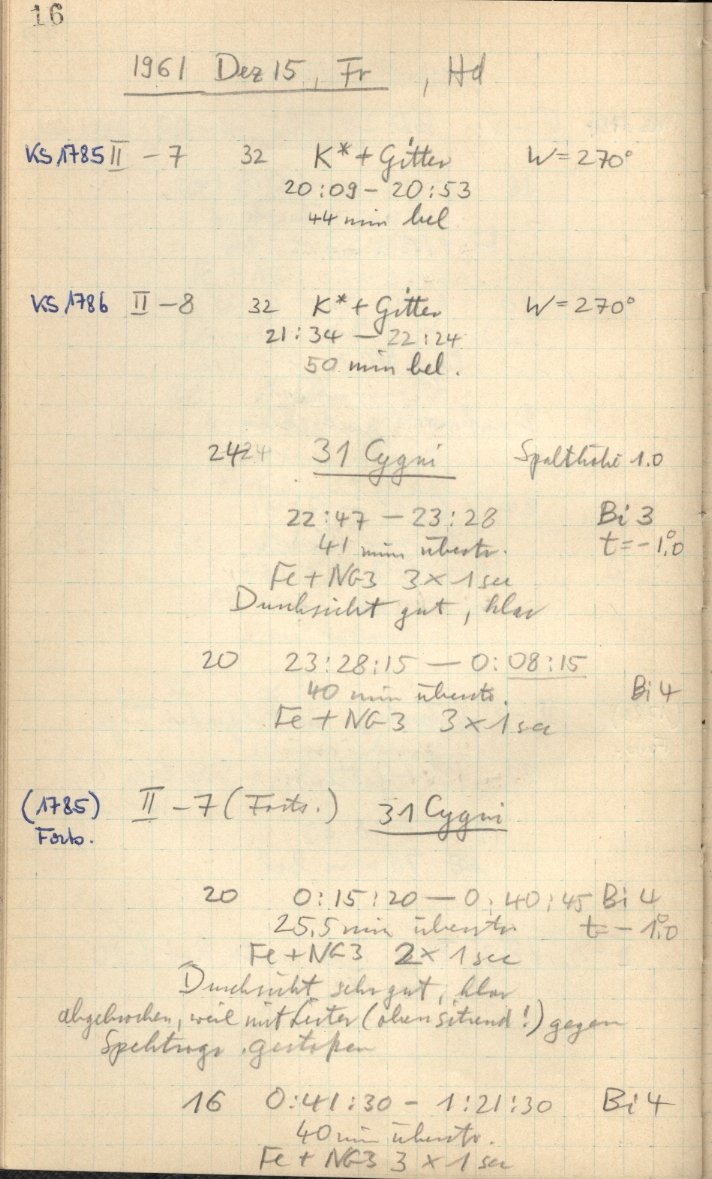 16
1961 Dez 15, Fr , Hd
KS 1785 II - 7 32 K* + Gitter W = 270°
20:09 - 20:53
44 min bel
KS 1786 II - 8 32 K* + Gitter W = 270°
21:34 - 22:24
50 min bel.
24 24 31 Cygni Spalthöhe 1.0
22:47 - 23:28 Bi 3
41 min überstr. t = -1°.0
Fe + NG3 3 × 1 sec
Durchsicht gut, klar
20 23:28:15 - 0:08:15
40 min überstr. Bi 4
Fe + NG3 3 × 1 sec
(1785) II - 7 (Forts.) 31 Cygni
Forts.
20 0:15:20 - 0:40:45 Bi 4
25,5 min überstr t = -1°.0
Fe + NG3 2 × 1 sec
Durchsicht sehr gut, klar
abgebrochen, weil mit Leiter (oben sitzend!) gegen
Spektrogr. gestoßen
16 0:41:30 - 1:21:30 Bi 4
40 min überstr.
Fe + NG3 3 × 1 sec